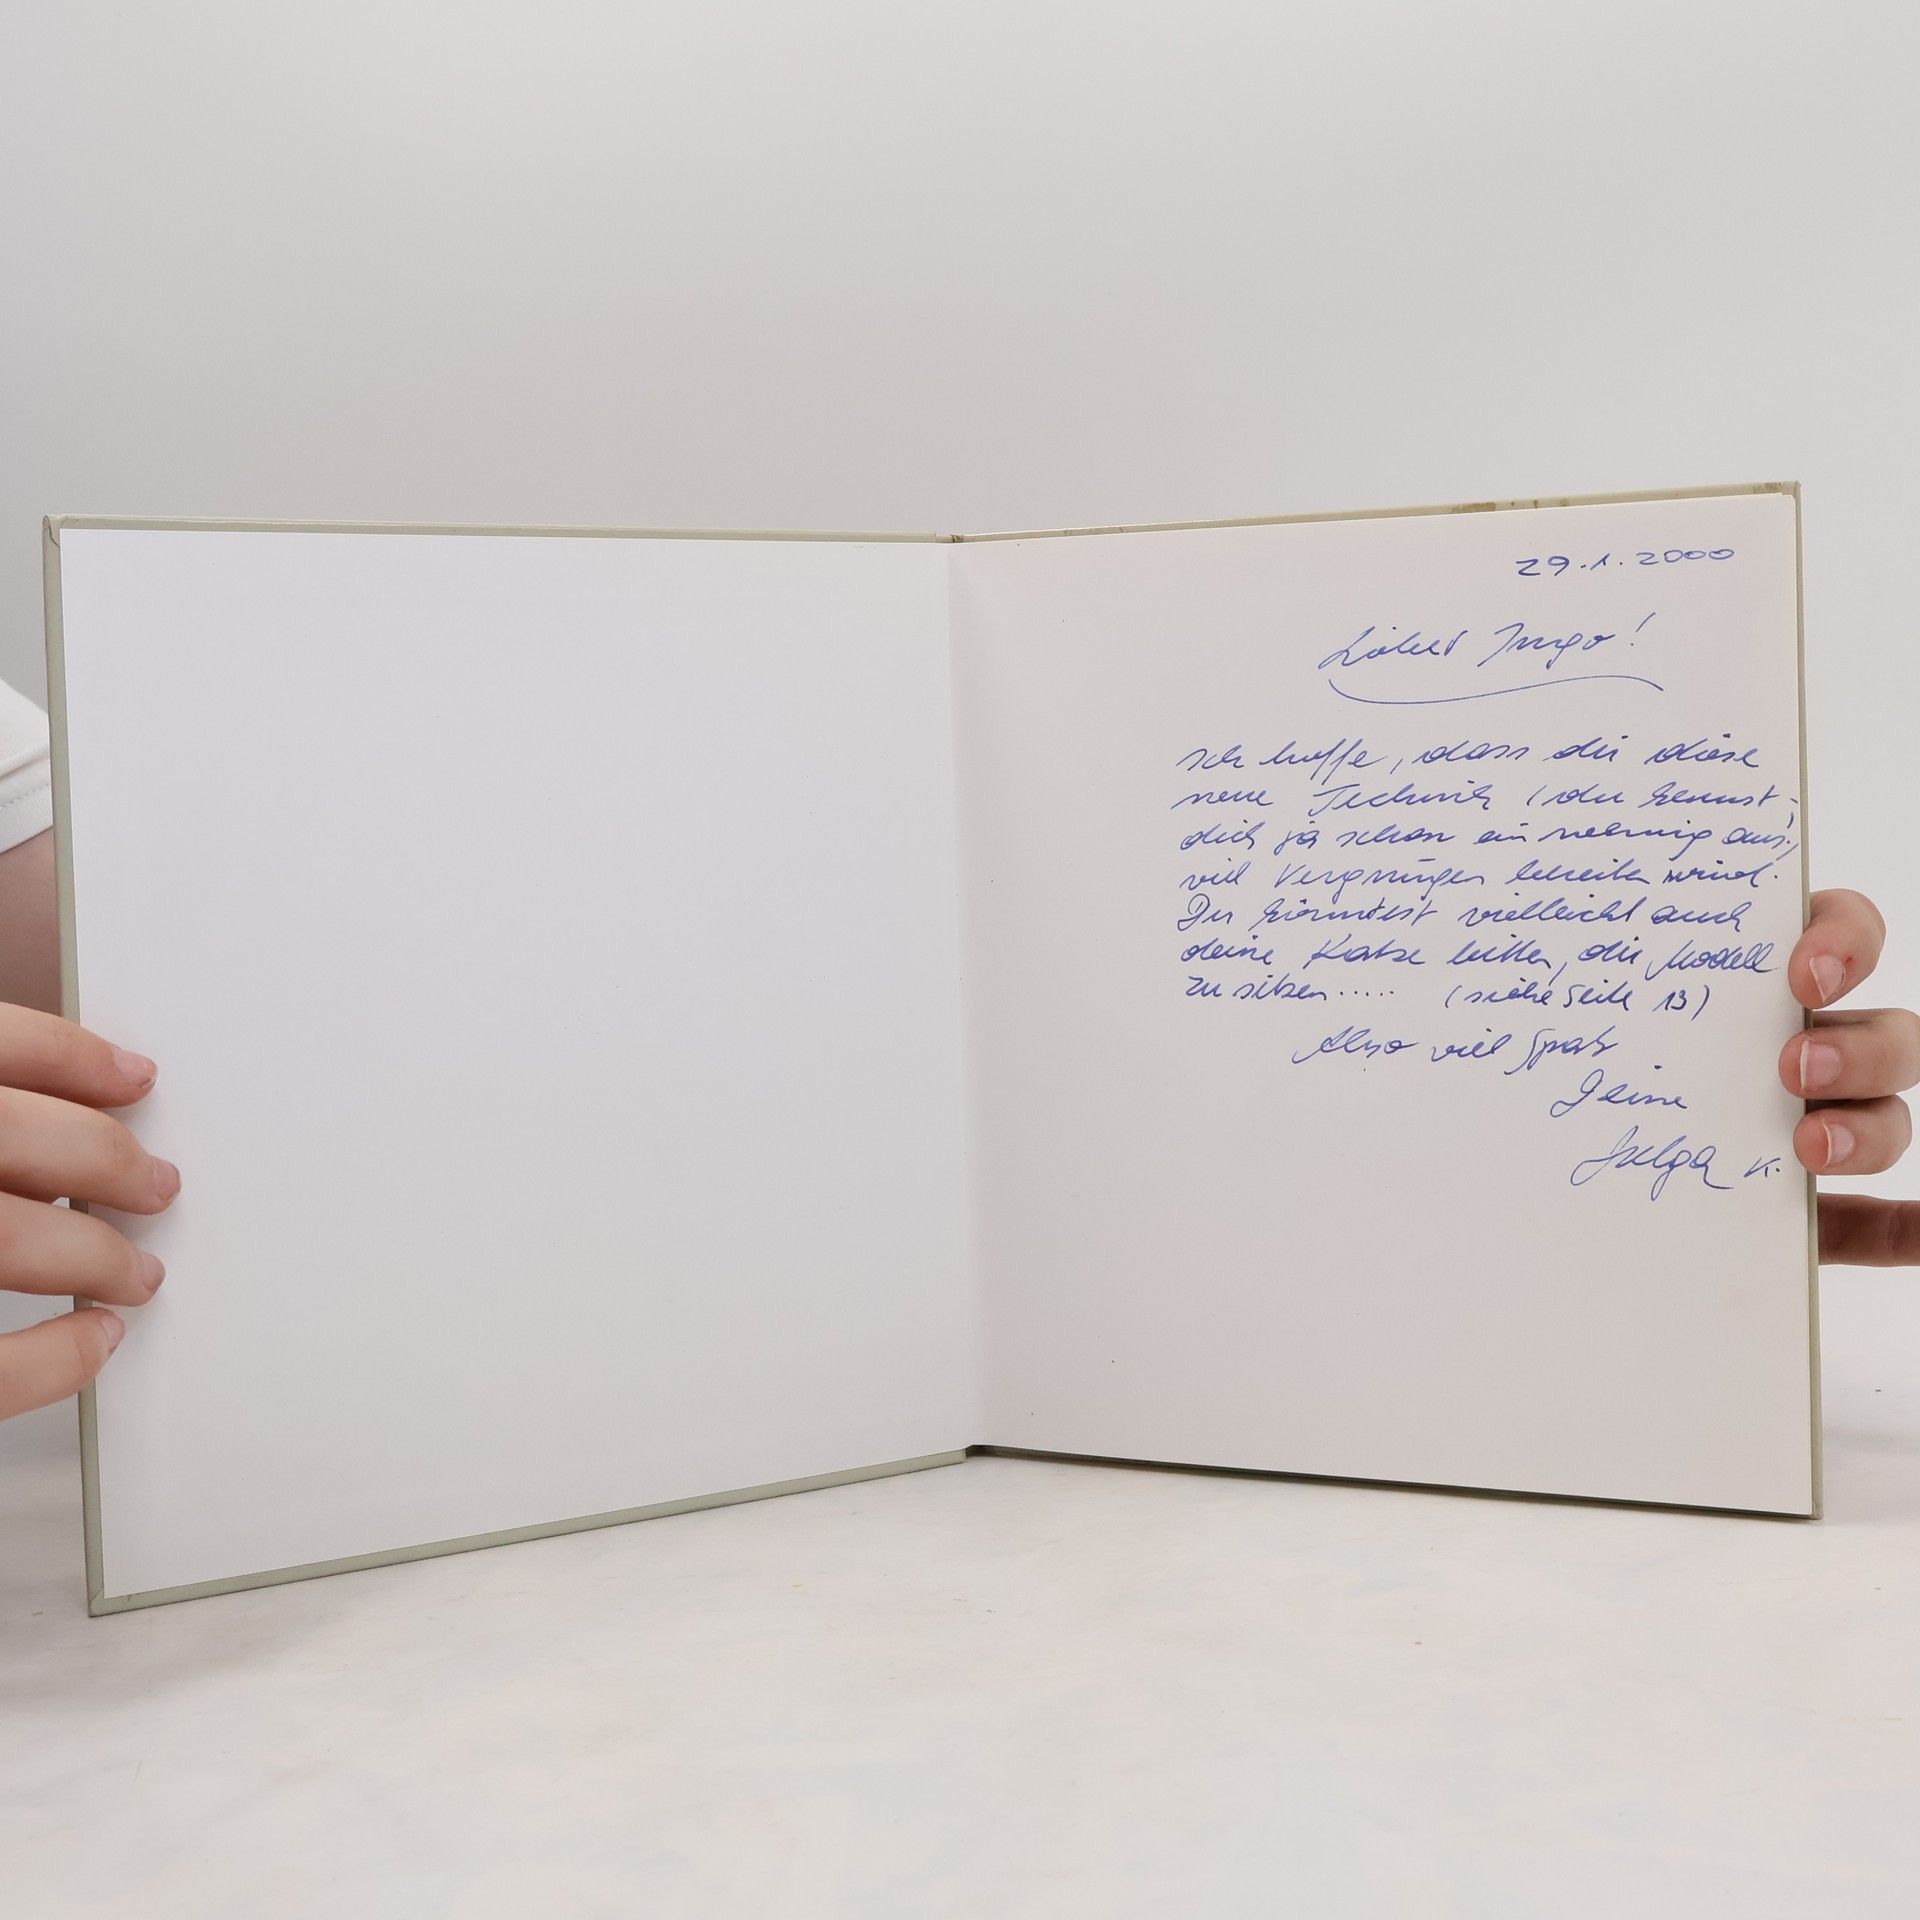 29.1.2000
Lieber Ingo!
Ich hoffe, dass dir diese
neue Technik (du kennst
dich ja schon ein wenig aus!)
viel Vergnügen bereiten wird.
Du könntest vielleicht auch
deine Katze bitten, dir Modell
zu sitzen..... (siehe Seite 13)
Also viel Spaß
Deine
Helga K.